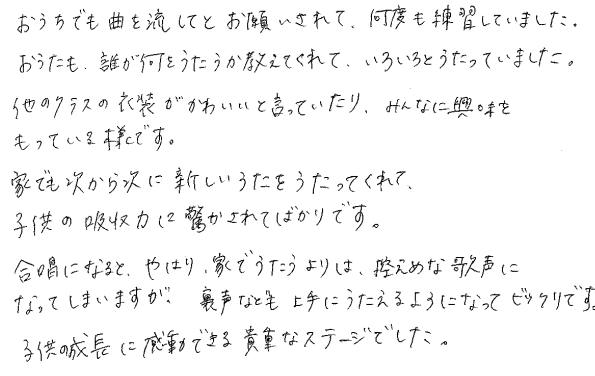 おうちでも曲を流してとお願いされて、何度も練習していました。
おうたも、誰が何をうたうか教えてくれて、いろいろとうたっていました。
他のクラスの衣装がかわいいと言っていたり、みんなに興味を
もっている様です。
家でも次から次に新しいうたをうたってくれて、
子供の吸収力に驚かされてばかりです。
合唱になると、やはり、家でうたうよりは、控えめな歌声に
なってしまいますが、裏声なども上手にうたえるようになってビックリです。
子供の成長に感動できる貴重なステージでした。